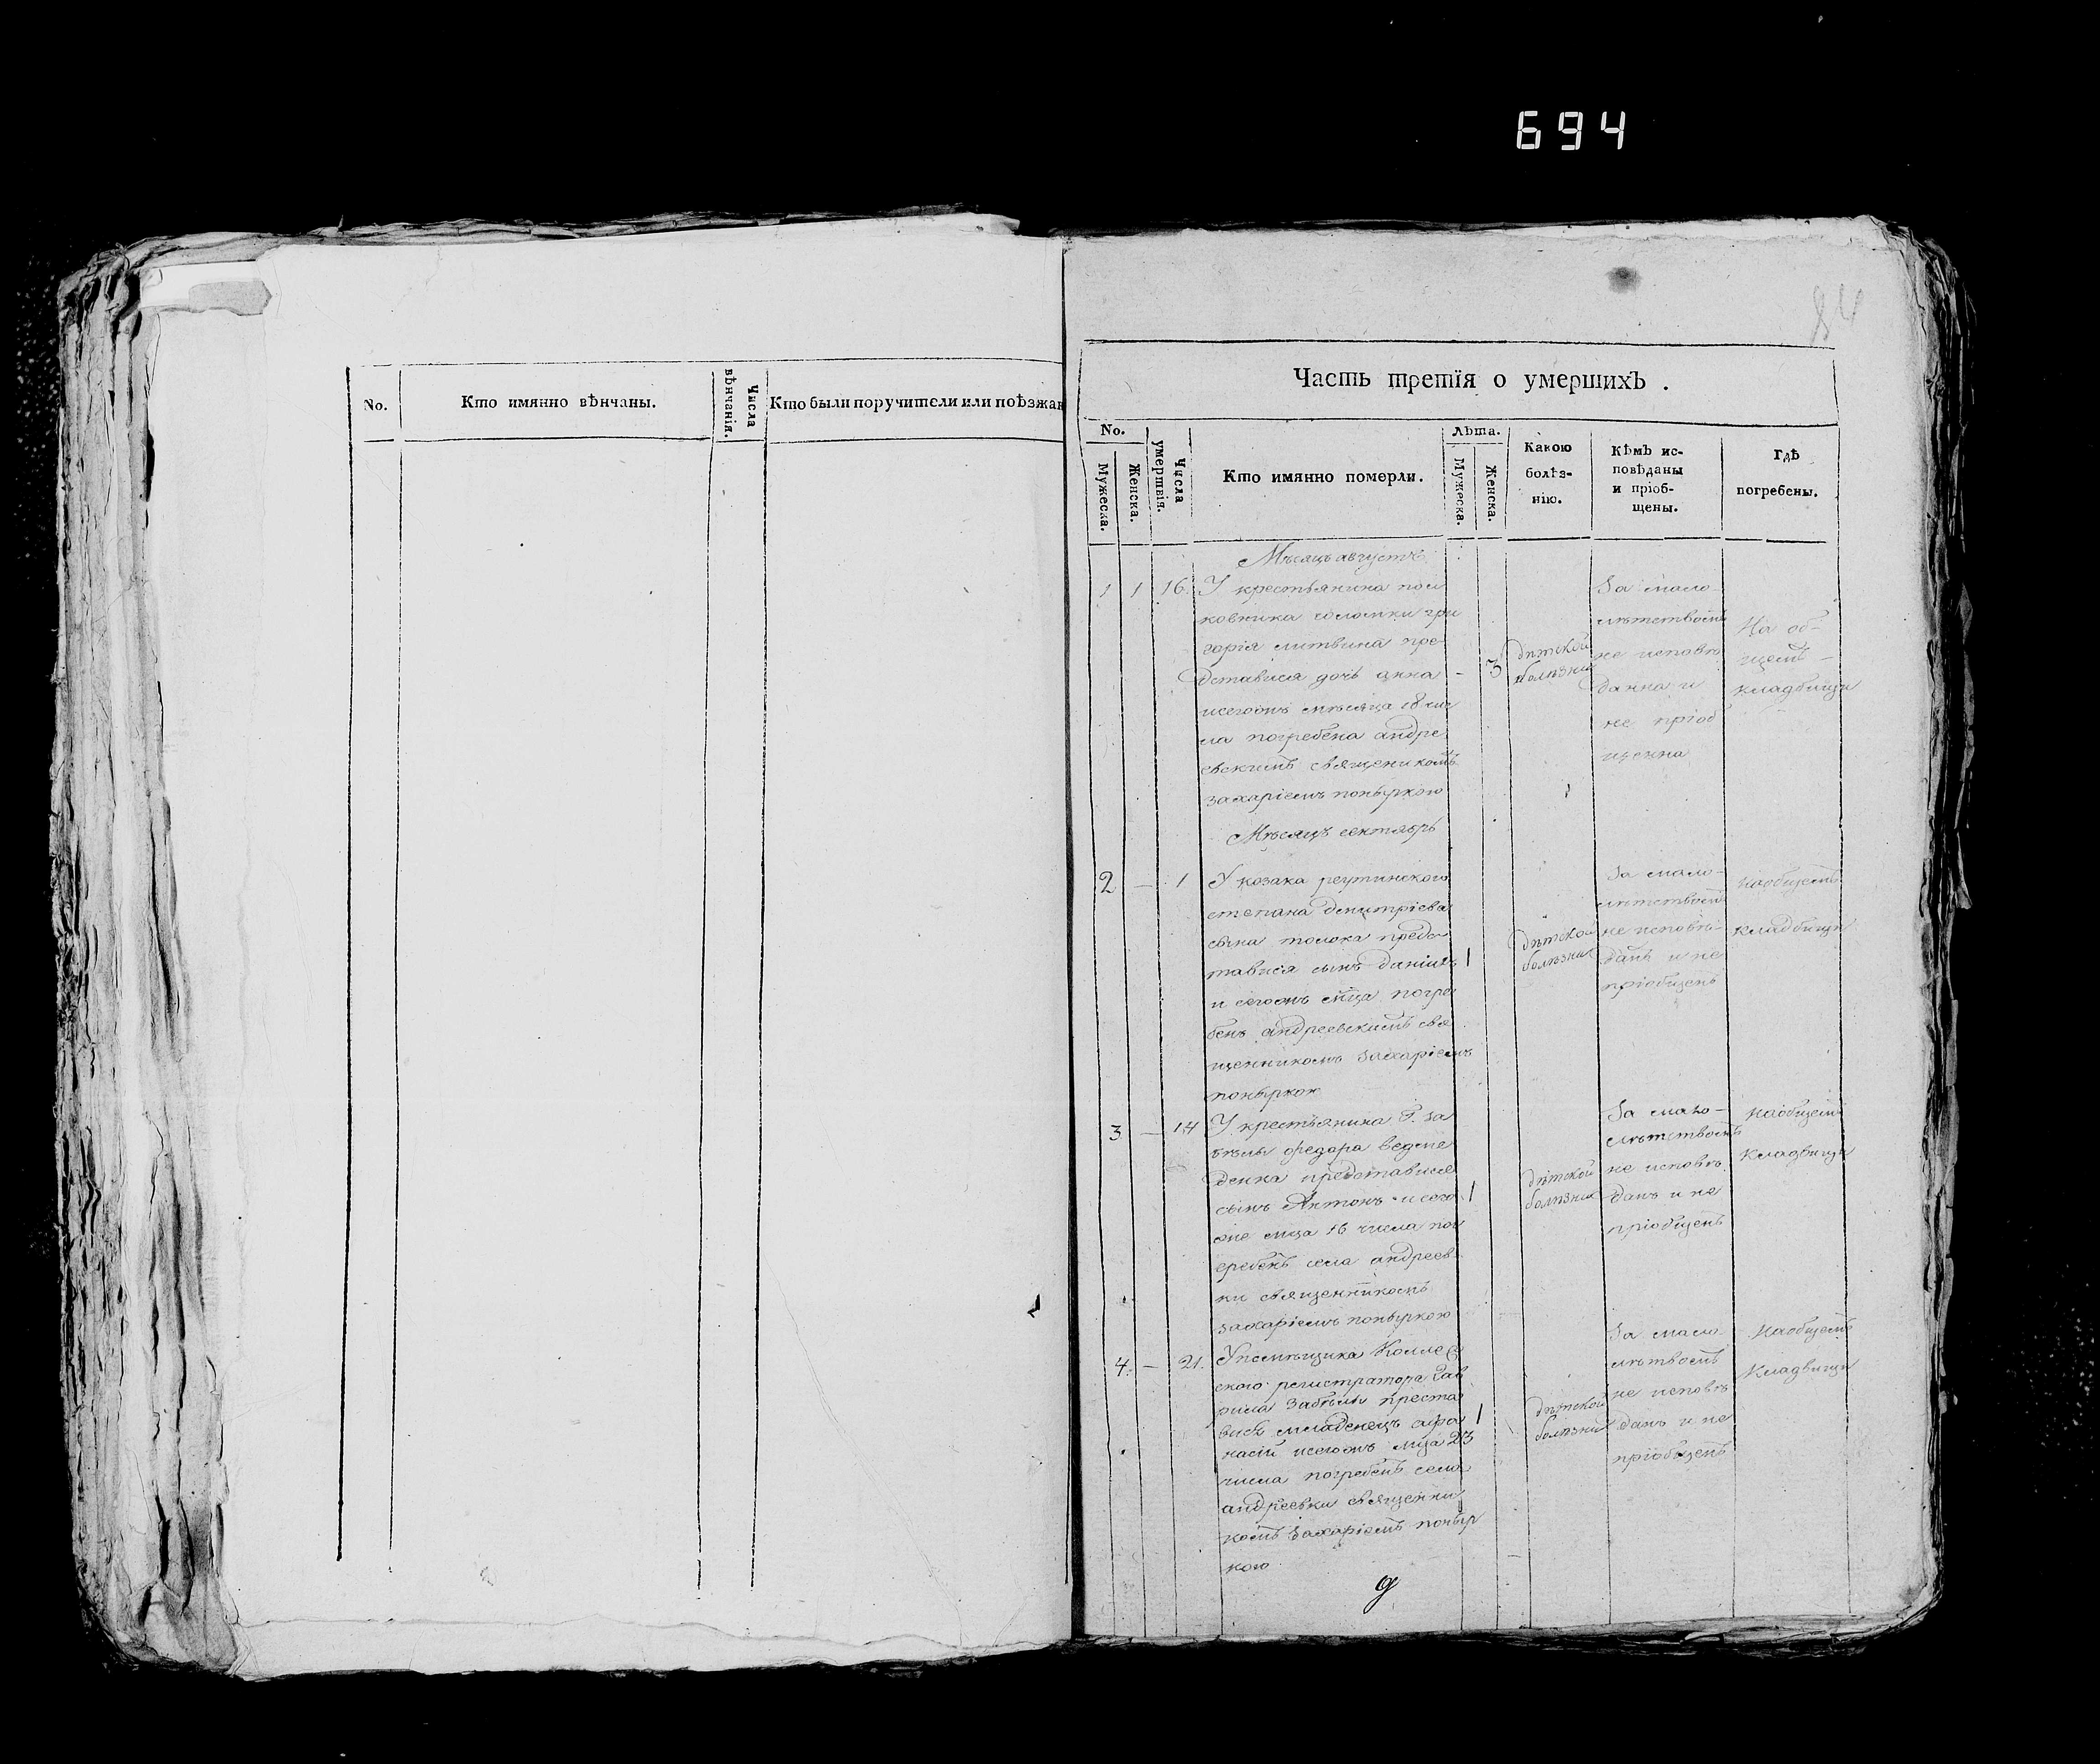 694
84
No.
Кто имянно вѣнчаны.
Числа вѣнчанія.
Кто были поручители или поѣзжан
Часть третїя о умершихЪ .
No.
Мужеска.
Женска.
Числа умертвія.
Кто имянно померли.
Лѣта.
Мужеска.
Женска.
Какою
болѣз-
нію.
КѢмЪ ис-
повѣданы
и пріоб-
щены.
ГдѢ
погребены.
Мѣсяцъ августъ
1 1 16. У крестьянина пол
ковника соломки гри
горія литвина пре
дставися дочь анна
исегожъ мѣсяца 18 чис
ла погребена андре
евскимъ священикомъ
захаріемъ
- 3
дѣтской
болѣзни
За мало
лѣтствомъ
не исповѣ
данна и
не пріоб
щенна
На об-
щемъ
кладбищи
Мѣсяцъ сентябрь
2 — 1 У козака
степана димитріева
сына толока предс
тавися сынъ даніилъ
и сегожъ мца погре
бенъ андреевскимъ свя
щенникомъ захаріемъ
1
дѣтской
болѣзни
За мало-
лѣтствомъ
не исповѣ-
данъ и не
пріобщенъ
наобщемъ
кладбищи
3 — 14 У крестьянина Г. за
бѣлы федора
представисе
сынъ Антонъ исего
же мца 16 числа пог
ребенъ села андреев
ки священникомъ
захаріемъ
1
дѣтской
болѣзни
За мало-
лѣтствомъ
не исповѣ
данъ и не
пріобщенъ
наобщемъ
кладбищи
4. — 21. Упомѣщика Коллеж
ского регистратора Гав
рила Забѣлы преста
вися младенецъ афа
насій исегожъ мца 23
числа погребенъ села
андреевки священни
комъ Захаріемъ
кою
1
дѣтской
болѣзни
За мало
лѣтвомъ
не исповѣ
данъ и не
пріобщенъ
Наобщемъ
Кладбищи